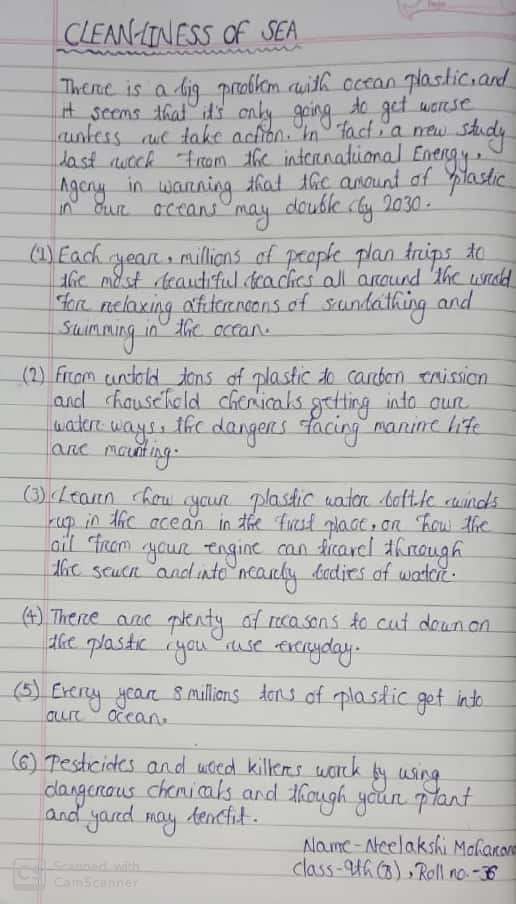 CLEANLINESS OF SEA
There is a big problem with ocean plastic, and
it seems that it's only going to get worse
unless we take action. In fact, a new study
last week from the international Energy,
Ageny in warning that the amount of plastic
in our oceans may double by 2030.
(1) Each year, millions of people plan trips to
the most beautiful beaches all around the world
for relaxing afterenoons of sundathing and
swimming in the ocean.
(2) From untold tons of plastic to carbon emission
and household chemicals getting into our
water ways, the dangers facing marine life
are mounting.
(3) Learn how your plastic water bottle winds
up in the ocean in the first place, or how the
oil from your engine can travel through
the sewer and into nearly bodies of water.
(4) There are plenty of reasons to cut down on
the plastic you use everyday.
(5) Every year 8 millions tons of plastic get into
our ocean.
(6) Pesticides and weed killers work by using
dangerous chemicals and though your plant
and yard may benefit.
Name - Neelakshi
class - 9th (B), Roll no. - 36
CS Scanned with
CamScanner